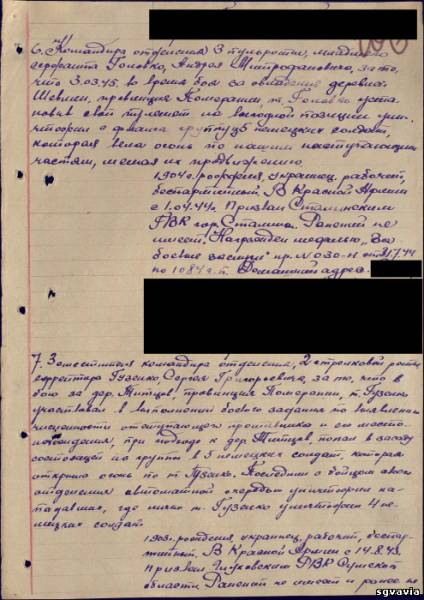 6. Командира отделения 3 пульроты, младшего
сержанта Головко, Андрея Митрофановича, за то,
что 3.03.45. во время боя за овладение деревни
провинция Померания, т. Головко уста-
новив свой пулемет на выгодной позиции уни-
чтожил с фланга группу 5 немецких солдат,
которая вела огонь по нашим наступающим
частям, мешая их продвижению.
1904 г. рождения, украинец, рабочий,
беспартийный. В Красной Армии
с 1.04.44 г. Призван Сталинским
РВК гор. Сталино. Ранений не
имеет. Награжден медалью „За
боевые заслуги" пр. № 030-н от 31.7.44
по 1084 с.п. Домашний адрес-
7. Заместителя командира отделения, 2 стрелковой роты
ефрейтора Гузенко, Сергея Григорьевича, за то, что в
бою за дер. провинция Померании, т. Гузенко
участвовал в выполнении боевого задания по выявлению
численности отступающего противника и его место-
нахождения, при подходе к дер. попал в засаду
состоящей из группы в 5 немецких солдат, которая
открыла огонь по т. Гузенко. Последний с бойцом своего
отделения автоматной очередью уничтожил на-
падавших, где лично т. Гузенко уничтожил 4 не-
мецких солдат.
1903. рождения, украинец, рабочий, беспар-
тийный. В Красной Армии с 14.8.43.
Призван РВК Сумской
области, Ранений не имеет и ранее не
sgvavia